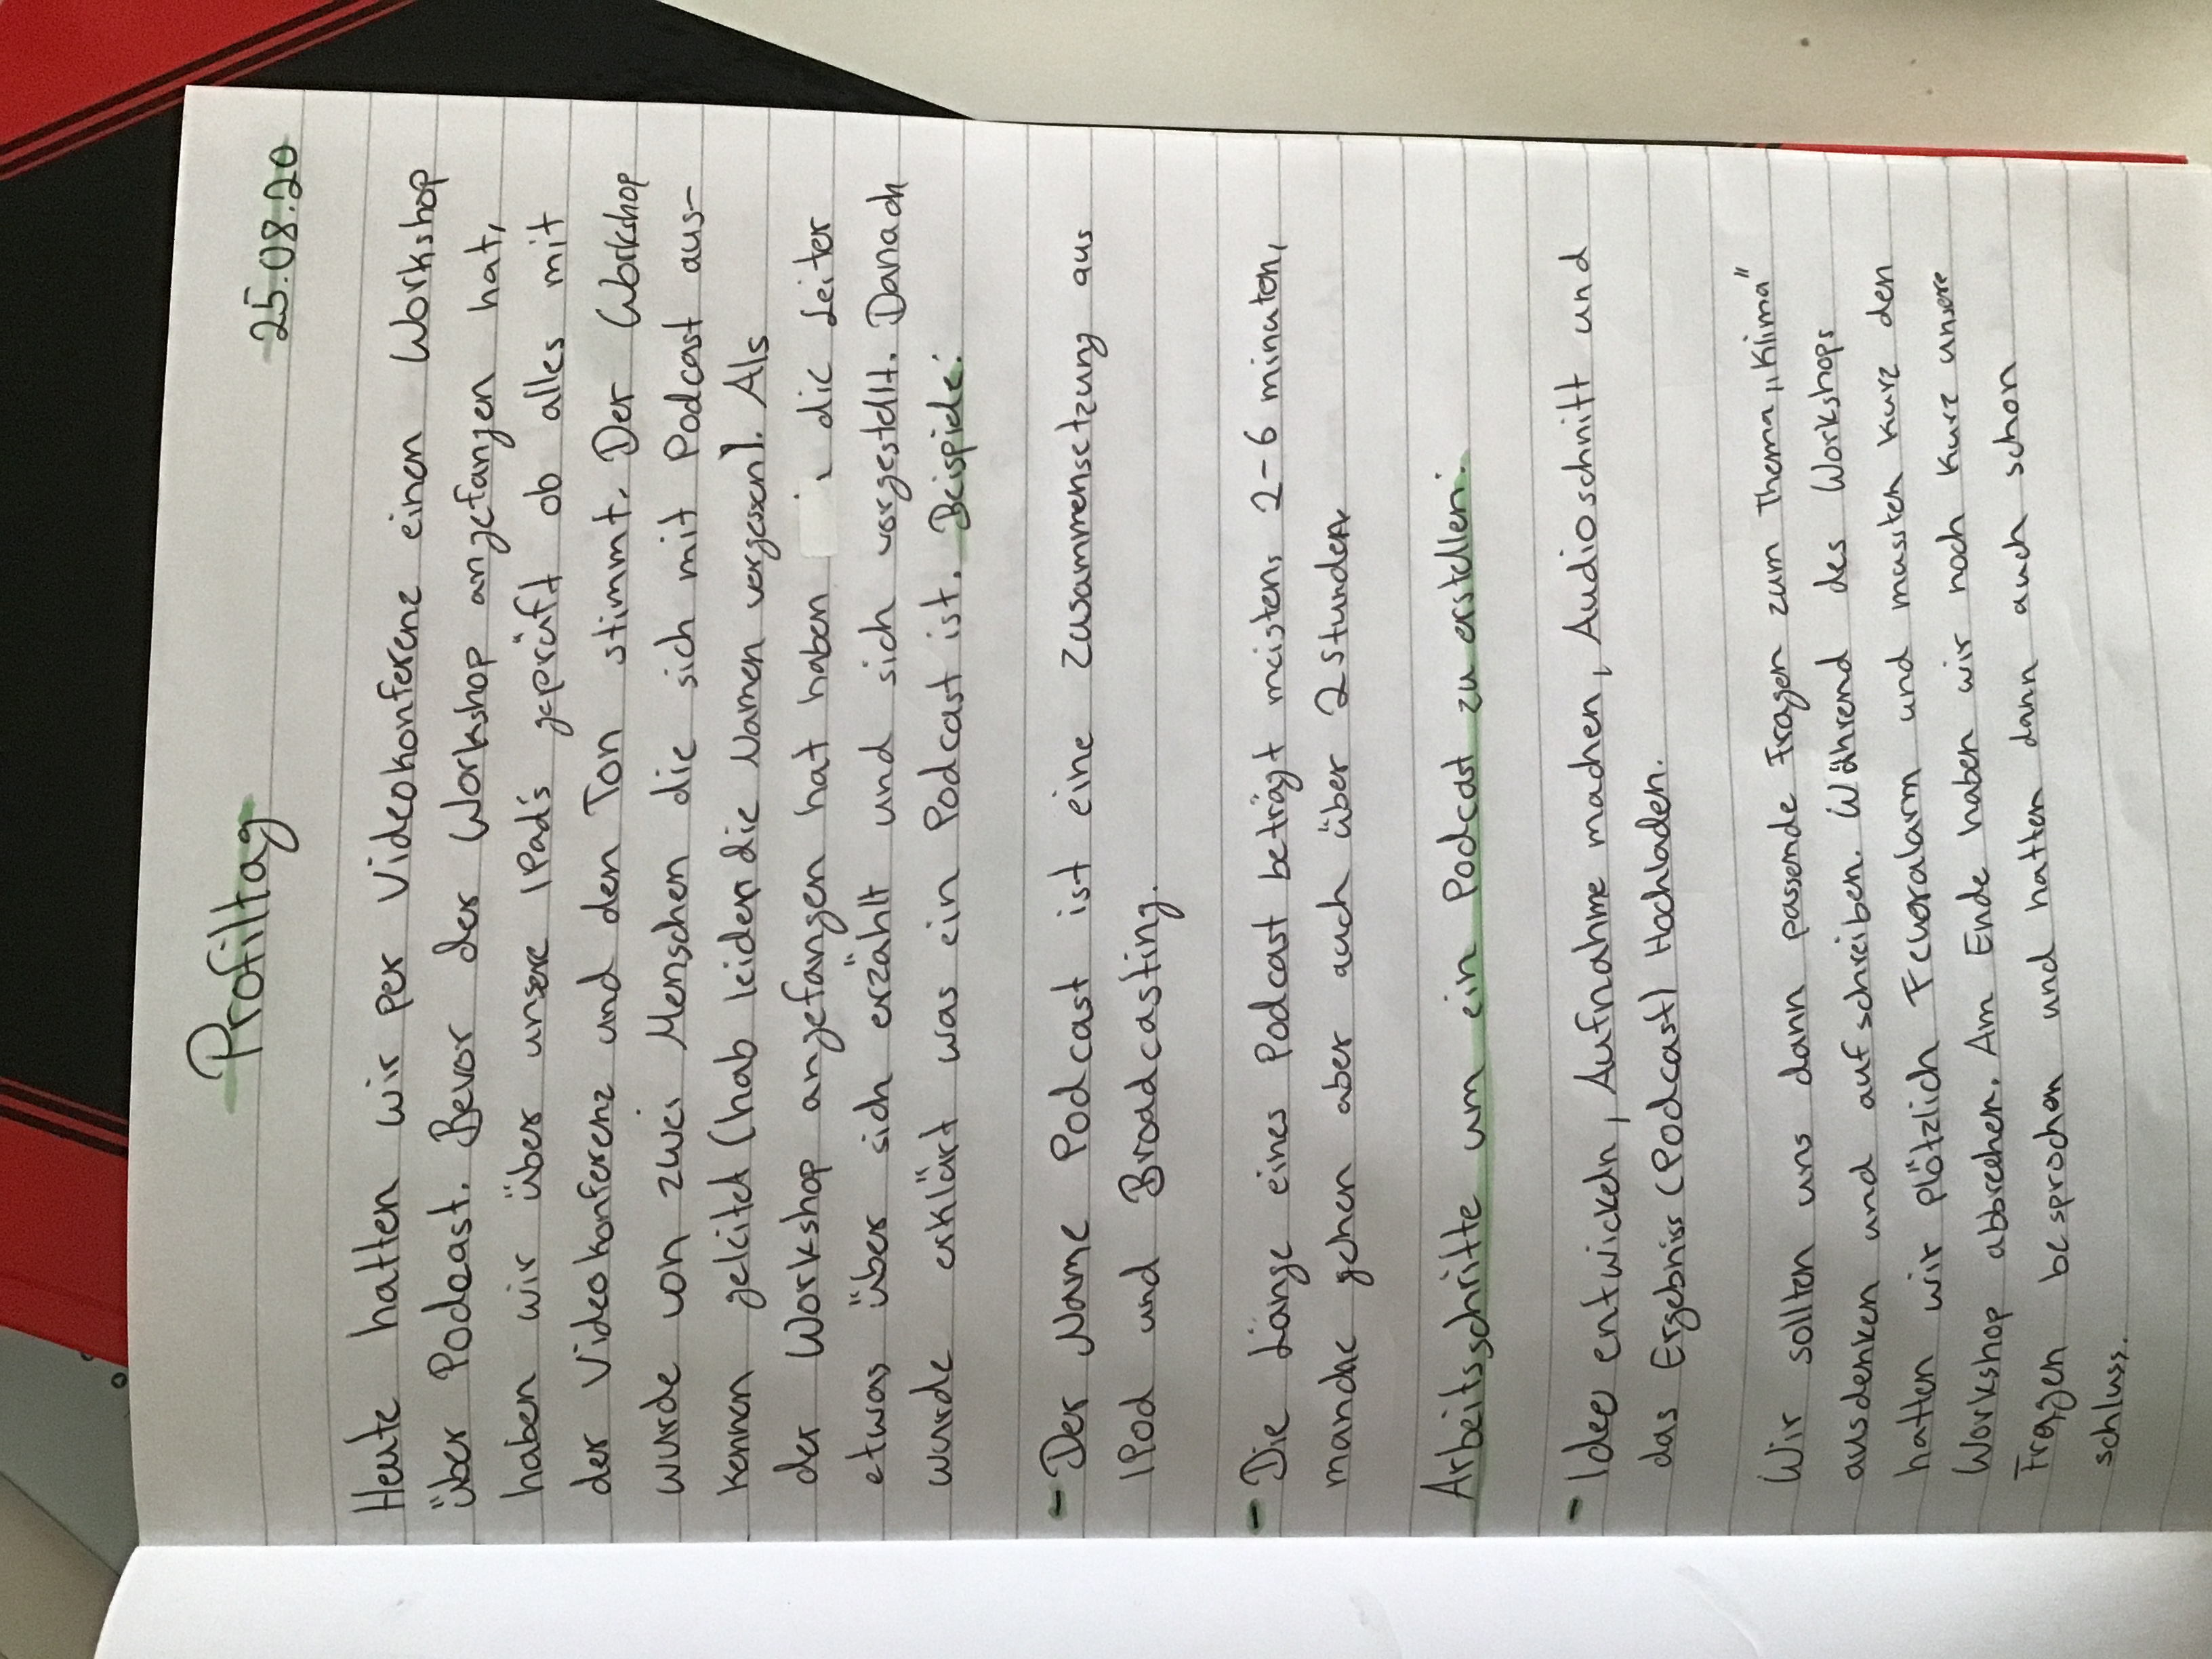 Profiltag
25.08.20
Heute hatten wir per Videokonferenz einen Workshop
über Podcast. Bevor der Workshop angefangen hat,
haben wir über unsere IPad's geprüft ob alles mit
der Videokonferenz und den Ton stimmt. Der Workshop
wurde von zwei Menschen die sich mit Podcast aus-
kennen geleitet (hab leider die Namen vergessen). Als
der Workshop angefangen hat haben die Leiter
etwas über sich erzählt und sich vorgestellt. Danach
wurde erklärt was ein Podcast ist. Beispiele:
- Der Name Podcast ist eine zusammensetzung aus
IPod und Broadcasting.
- Die Länge eines Podcast beträgt meistens 2-6 minuten,
manche gehen aber auch über 2 stunden.
Arbeitsschritte um ein Podcast zu erstellen:
- Idee entwickeln, Aufnahme machen, Audioschnitt und
das Ergebniss (Podcast) Hochladen.
Wir sollten uns dann passende Fragen zum Thema „Klima"
ausdenken und aufschreiben. Während des Workshops
hatten wir plötzlich Feueralarm und mussten kurz den
Workshop abbrechen. Am Ende haben wir noch kurz unsere
Fragen besprochen und hatten dann auch schon
schluss.